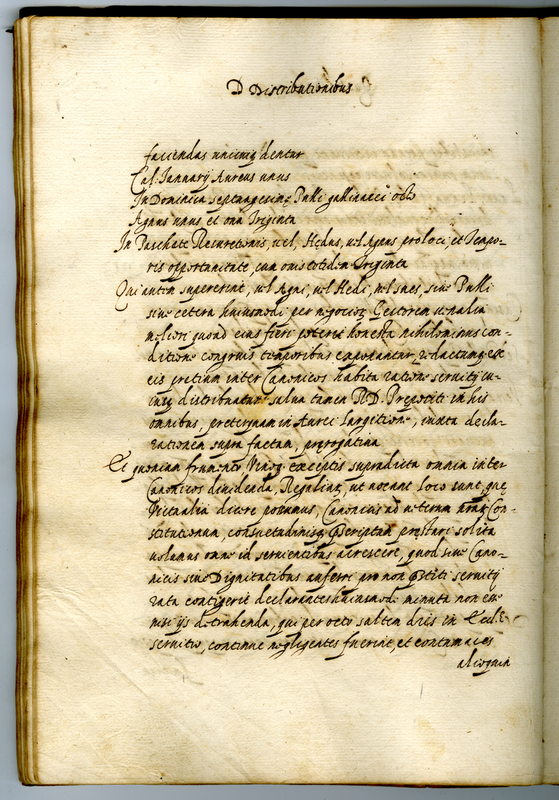 D Distributionibus
faciendas unicuiq dentur
Cal: Januarij Aureus unus
In Dominica septuagesimę Pulli gallinacei octo
Agnus unus et oua triginta
In Paschate Resurectionis, uel, Hędus, uel Agnus pro loci, et tempo-
ris opportunitate, cum ouis totidem triginta
Qui autem supererint, uel Agni, uel Hedi, uel sues, siue Pulli
siue cetera huiusmodi per negocior Gestorem uenalia
meliori quoad eius fieri poterit honesta nihilominus con-
ditione congruis temporibus exponantur, redactumq ex
eis pretium inter Canonicos habita ratione seruitij cu-
iusq distribuatur salua tamen R.D. Prepositi in his
omnibus, preterquam in Aurei largitione, iuxta decla-
rationem supra factam, prerogatiua
Et quoniam frumento Vinoq exceptis supradicta omnia inter
Canonicos diuidenda, Regaliaq, ut uocant loco sunt, quę
Victualia dicere possumus, Canonicis ad ueterum Con-
stitutionum, consuetudinisq pręscriptam pręstari solita
uolumus omne id seruientibus accrescere, quod siue Cano-
nicis siue Dignitatibus auferri pro non pręstiti seruitij
rata contigerit declarantes huiusmodi minuta non esse
nisi ijs detrahenda, qui per octo saltem dies in Eccles
seruitio, continue negligentes fuerint, et contumaces
alioquin